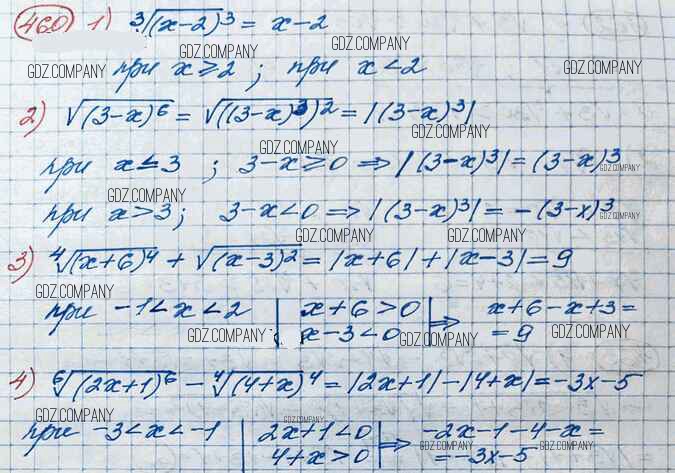 460 1) ∛(x-2)³ = x-2
GDZ.COMPANY GDZ.COMPANY
GDZ.COMPANY при x≥2 ; при x<2 GDZ.COMPANY
2) √(3-x)⁶ = √((3-x)³)² = |(3-x)³|
GDZ.COMPANY GDZ.COMPANY
при x≤3 ; 3-x≥0 ⇒ |(3-x)³| = (3-x)³
GDZ.COMPANY GDZ.COMPANY
при x>3; 3-x<0 ⇒ |(3-x)³| = -(3-x)³
GDZ.COMPANY GDZ.COMPANY GDZ.COMPANY
3) ∜(x+6)⁴ + √(x-3)² = |x+6| + |x-3| = 9
GDZ.COMPANY
при -1<x<2 | x+6>0 | ⇒ x+6-x+3=
GDZ.COMPANY | x-3<0 | GDZ.COMPANY =9 GDZ.COMPANY
4) ⁶√(2x+1)⁶ - ∜(4+x)⁴ = |2x+1| - |4+x| = -3x-5
GDZ.COMPANY GDZ.COMPANY
при -3<x<-1 | 2x+1<0 | ⇒ -2x-1-4-x=
GDZ.COMPANY GDZ.COMPANY
| 4+x>0 | =-3x-5
GDZ.COMPANY GDZ.COMPANY